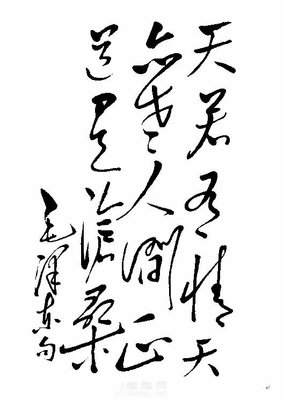 天若有情天
亦老人間正
道是滄桑
毛澤东句